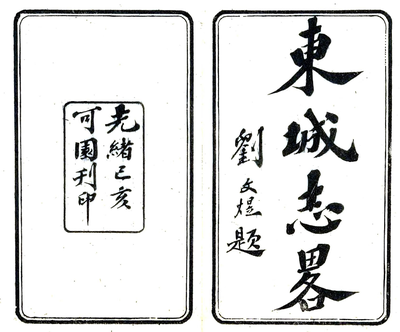 東城志畧
劉文煜題
光緒己亥
可園刊印